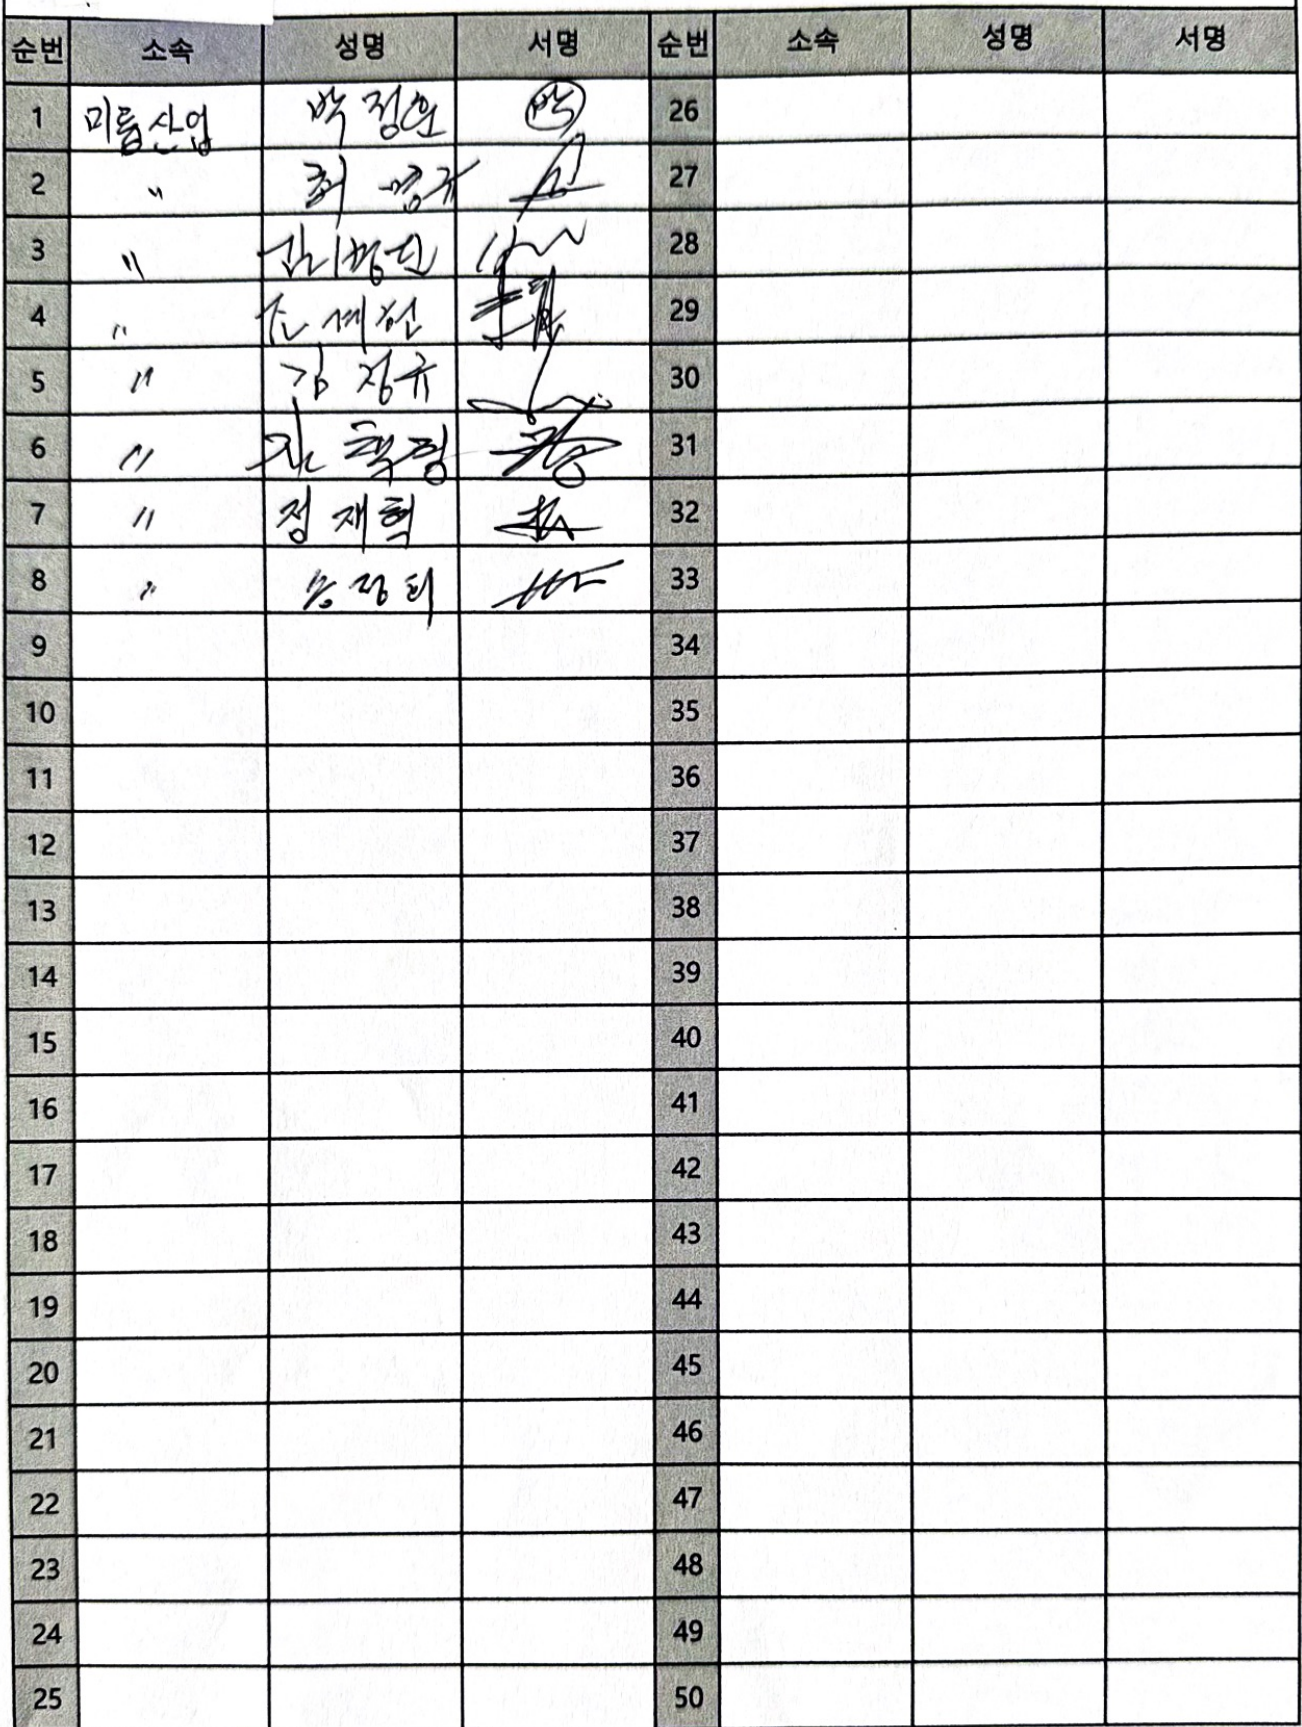 순번 소속 성명 서명 순번 소속 성명 서명
1 미름산업 박정원 박 26
2 〃 최영규 27
3 〃 28
4 〃 29
5 〃 김정규 30
6 〃 31
7 〃 정재혁 32
8 〃 송장희 33
9 34
10 35
11 36
12 37
13 38
14 39
15 40
16 41
17 42
18 43
19 44
20 45
21 46
22 47
23 48
24 49
25 50